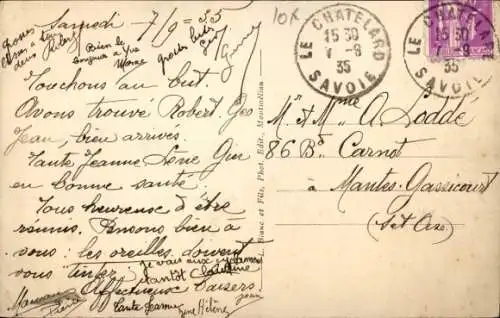 Samedi - 7/9 = 35
grosses bises à tes deux
Bien le bonjour à Yve
grosses bises
Touchons au but.
Avons trouvé Robert. Geo
Jean, bien arrivés.
Tante Jeanne René Gui
en bonne santé.
Tous heureux d'être
réunis. Pensons bien à
vous : les oreilles doivent
vous tinter.
Affectueux baisers
Tante Jeanne
Hélène
L. Blanc et Fils, Phot. Edit., Montmélian
10F
LE CHATELARD
15 30
7 - 9
35
SAVOIE
LE CHATELARD
15 30
7 - 9
35
SAVOIE
M. et Mme A. Loddé
86 Bd Carnot
à Mantes-Gassicourt
(Set Oise)